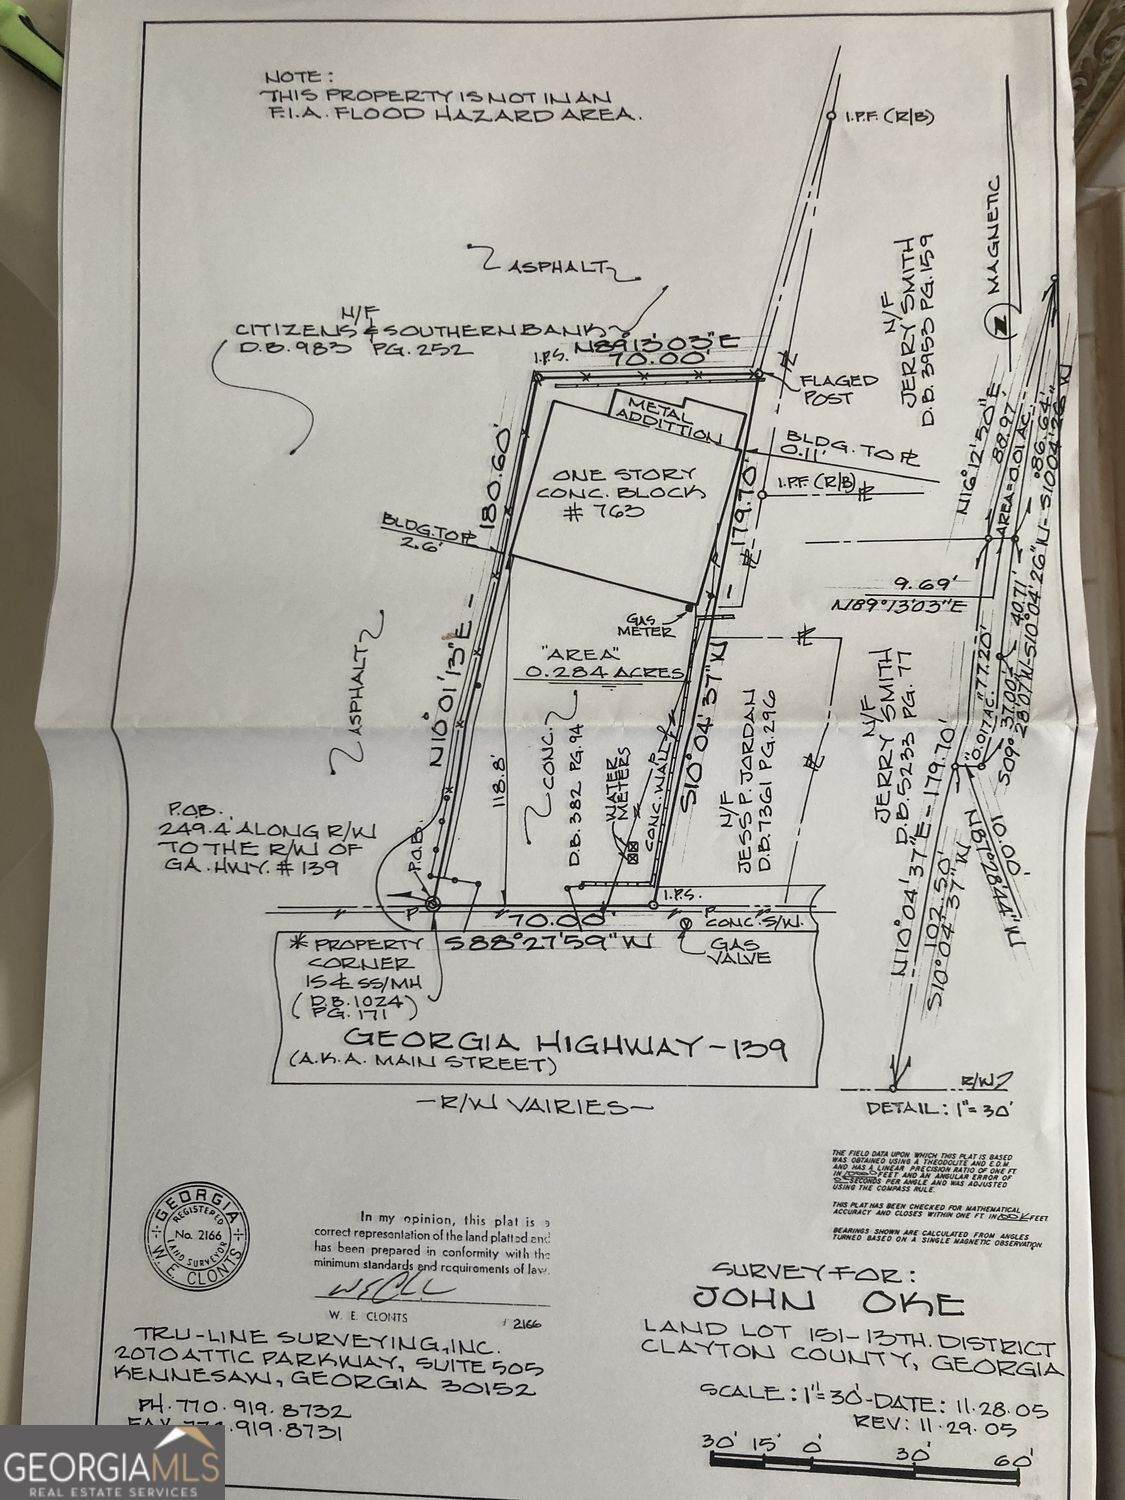 NOTE:
THIS PROPERTY IS NOT IN AN
F.I.A. FLOOD HAZARD AREA.
I.P.F. (R/B)
MAGNETIC
ASPHALT
N/F
CITIZENS & SOUTHERN BANK
D.B. 983 PG. 252
N/F
JERRY SMITH
D.B. 3953 PG. 159
I.P.S.
N89°13'03"E
70.00'
FLAGED
POST
METAL
ADDITTION
BLDG. TO PL
0.11'
I.P.F. (R/B)
ONE STORY
CONC. BLOCK
# 763
180.60'
179.70'
BLDG. TO PL
2.6'
N16°12'50"E
88.97'
AREA=0.01 AC.
86.64'
S10°04'26"W
9.69'
N89°13'03"E
GAS
METER
"AREA"
0.284 ACRES
ASPHALT
N10°01'13"E
118.8'
CONC.
D.B. 382 PG. 94
WATER
METERS
CONC. WALL
S10°04'37"W
N/F
JESS P. JORDAN
D.B. 7361 PG. 296
N/F
JERRY SMITH
D.B. 5233 PG. 77
77.20'
0.017 AC.
40.71'
S10°04'26"W
37.00'
28.07'
10.00'
N10°04'37"E-179.70'
102.50'
S10°04'37"W
P.O.B.
249.4 ALONG R/W
TO THE R/W OF
GA. HWY. # 139
P.O.B.
I.P.S.
P
70.00'
P
CONC. S/W.
S88°27'59"W
GAS
VALVE
* PROPERTY
CORNER
IS ℄ SS/MH
(D.B. 1024)
PG. 171
GEORGIA HIGHWAY-139
(A.K.A. MAIN STREET)
R/W
-R/W VAIRIES-
DETAIL: 1"=30'
THE FIELD DATA UPON WHICH THIS PLAT IS BASED
WAS OBTAINED USING A THEODOLITE AND E.D.M.
AND HAS A LINEAR PRECISION RATIO OF ONE FT.
IN FEET AND AN ANGULAR ERROR OF
SECONDS PER ANGLE AND WAS ADJUSTED
USING THE COMPASS RULE.
THIS PLAT HAS BEEN CHECKED FOR MATHEMATICAL
ACCURACY AND CLOSES WITHIN ONE FT. IN FEET
BEARINGS SHOWN ARE CALCULATED FROM ANGLES
TURNED BASED ON A SINGLE MAGNETIC OBSERVATION.
GEORGIA
REGISTERED
No. 2166
LAND SURVEYOR
W. E. CLONTS
In my opinion, this plat is a
correct representation of the land platted and
has been prepared in conformity with the
minimum standards and requirements of law.
W. E. CLONTS
# 2166
TRU-LINE SURVEYING, INC.
2070 ATTIC PARKWAY, SUITE 505
KENNESAW, GEORGIA 30152
PH. 770.919.8732
FAX 770.919.8731
SURVEY FOR:
JOHN OKE
LAND LOT 151-13TH. DISTRICT
CLAYTON COUNTY, GEORGIA
SCALE: 1"=30'-DATE: 11.28.05
REV: 11.29.05
30' 15' 0' 30' 60'
GEORGIAMLS
REAL ESTATE SERVICES